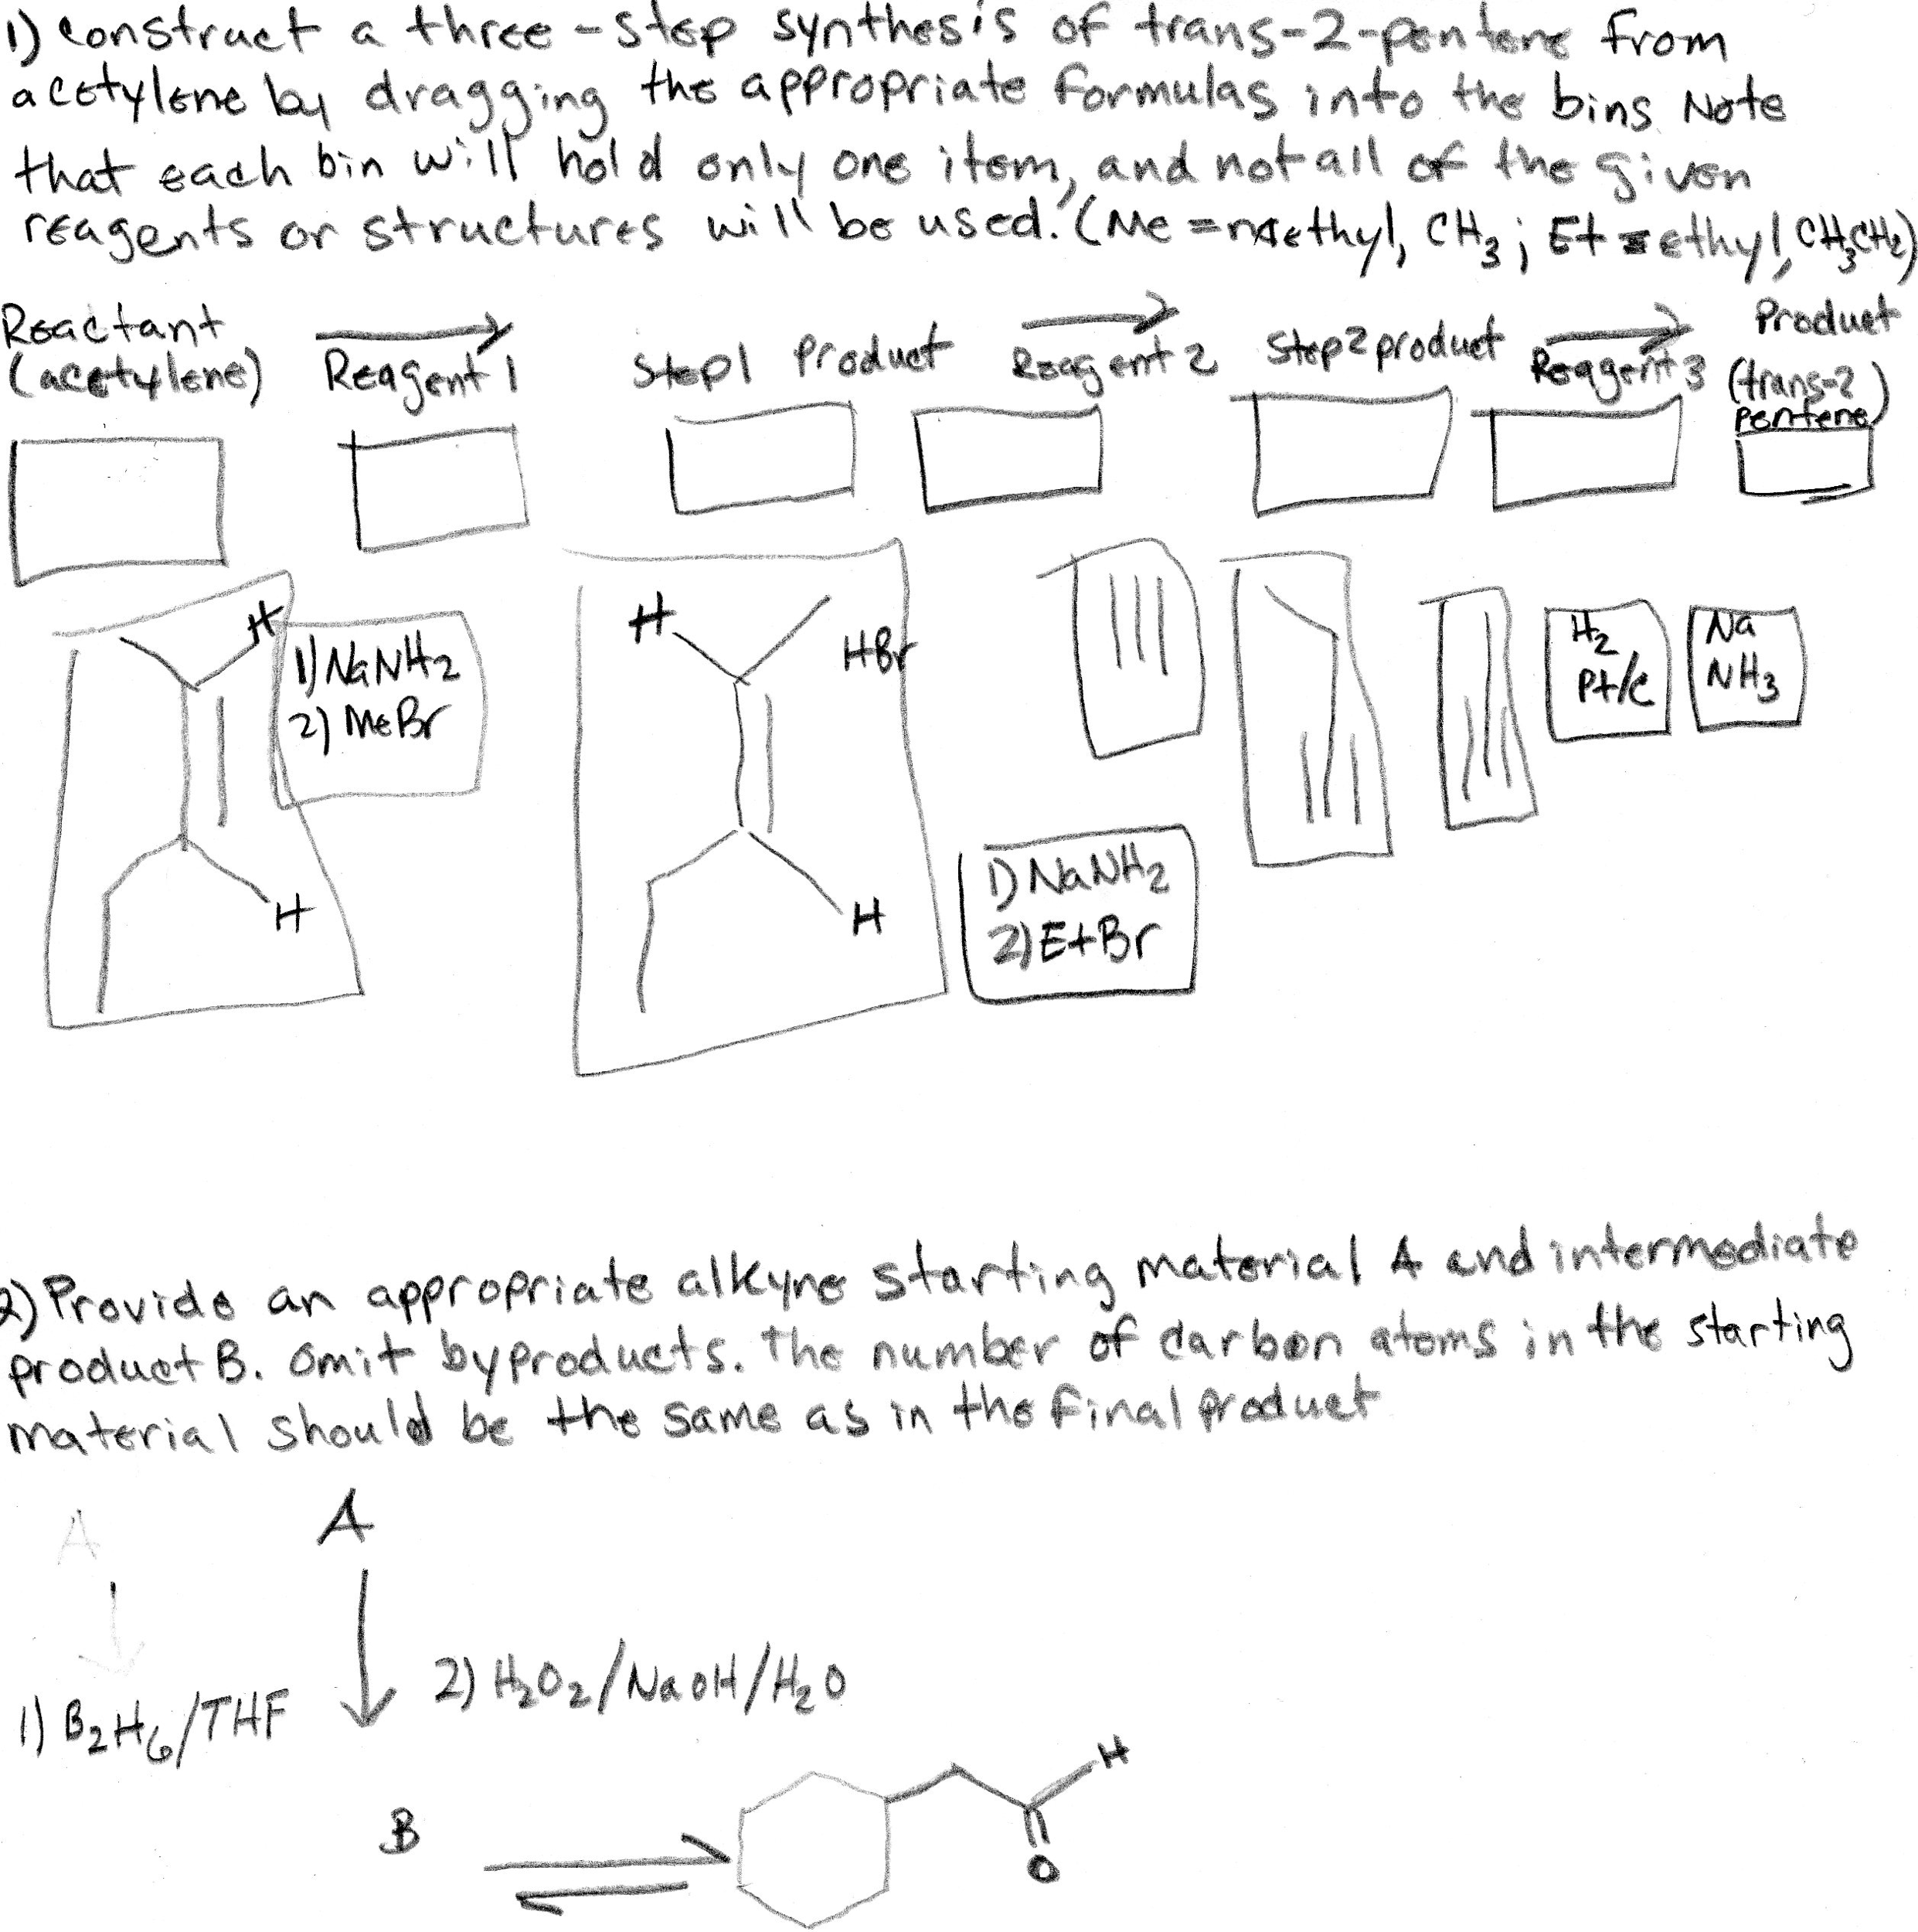 1) Construct a three-step synthesis of trans-2-pentene from
acetylene by dragging the appropriate formulas into the bins. Note
that each bin will hold only one item, and not all of the given
reagents or structures will be used. (Me = methyl, CH3; Et = ethyl, CH3CH2)
Reactant
(acetylene)
Reagent 1
Step 1 Product
Reagent 2
Step 2 product
Reagent 3
Product
(trans-2
pentene)
H
H
1) NaNH2
2) MeBr
H
HBr
H
1) NaNH2
2) EtBr
H2
Pt/c
Na
NH3
2) Provide an appropriate alkyne starting material A and intermediate
product B. Omit byproducts. The number of carbon atoms in the starting
material should be the same as in the final product
A
A
1) B2H6/THF
2) H2O2/NaOH/H2O
B
H
O